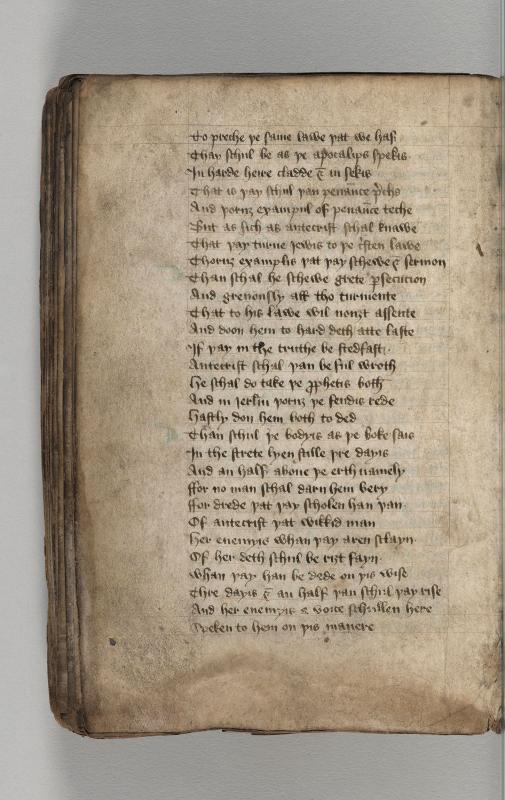 To preche þe same lawe þat we haf
Thay schul be as þe apocalips spekis
In harde heire cladde & in sekis
That is þay schul þan penance preche
And þoruȝ exampul of penance teche
But as sich as antecrist schal knawe
That þay turne iewis to þe cristen lawe
Thoruȝ examplis þat þay schewe & sermon
Than schal he schewe grete persecucion
And greuously alle tho turmente
That to his lawe wil nouȝt assente
And doon hem to hard deth atte laste
If þay in the truthe be stedfast
Antecrist schal þan be ful wroth
He schal do take þe prophetis both
And in ierlm þoruȝ þe fendis rede
Hastly don hem both to ded
Than schul þe bodyis as þe boke sais
In the strete lyen stille þre dayis
And an half aboue þe erth namely
ffor no man schal darn hem bery
ffor drede þat þay scholen han þan
Of antecrist þat wikkid man
Her enemyis whan þay aren sclayn
Of her deth schul be riȝt fayn
Whan þay han be dede on þis wise
Thre dayis & an half þan schul þay rise
And her enemyis a voice schullen here
Speken to hem on þis manere